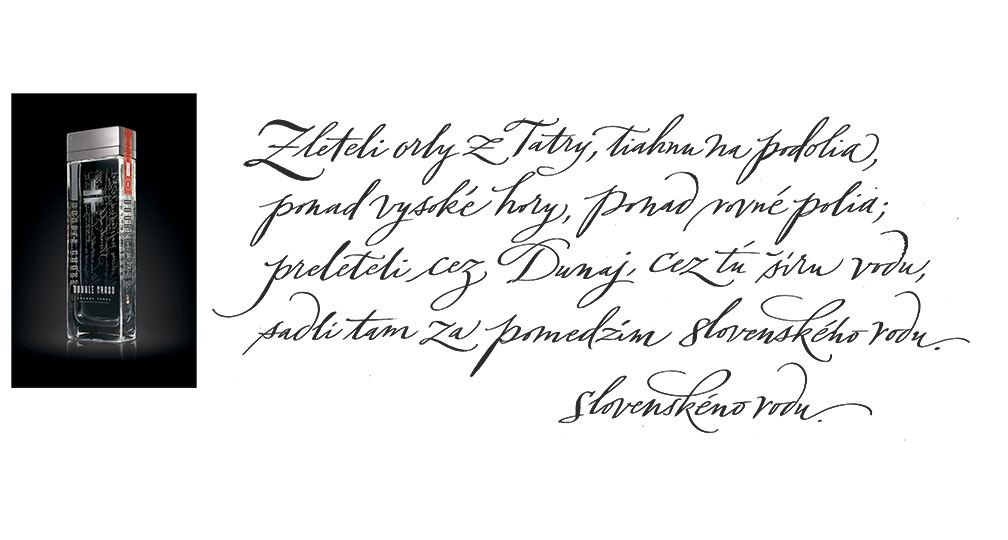 DOUBLE CROSS
DOUBLE CROSS
Zleteli orly z Tatry, tiahnu na podolia,
ponad vysoké hory, ponad rovné polia;
preleteli cez Dunaj, cez tú šíru vodu,
sadli tam za pomedzím slovenského rodu.
slovenského rodu.